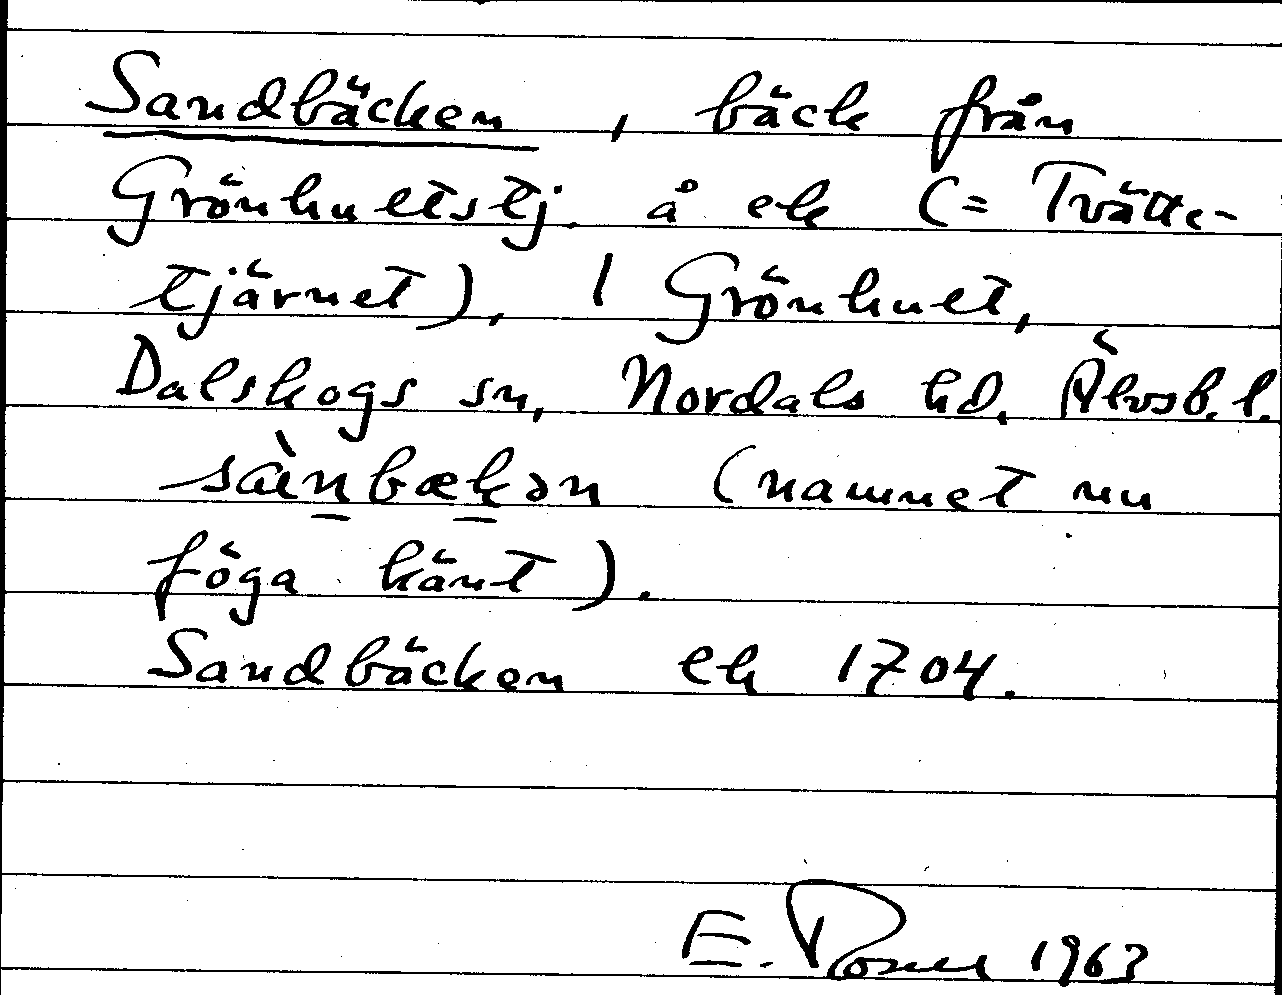 Sandbäcken, bäck från
Grönhultstj. å ek (= Tvätte-
tjärnet), 1 Grönhult,
Dalskogs sn, Nordals hd. Älvsb. l.
sànbækən (namnet nu
föga känt).
Sandbäcken ek 1704.
E. 1963